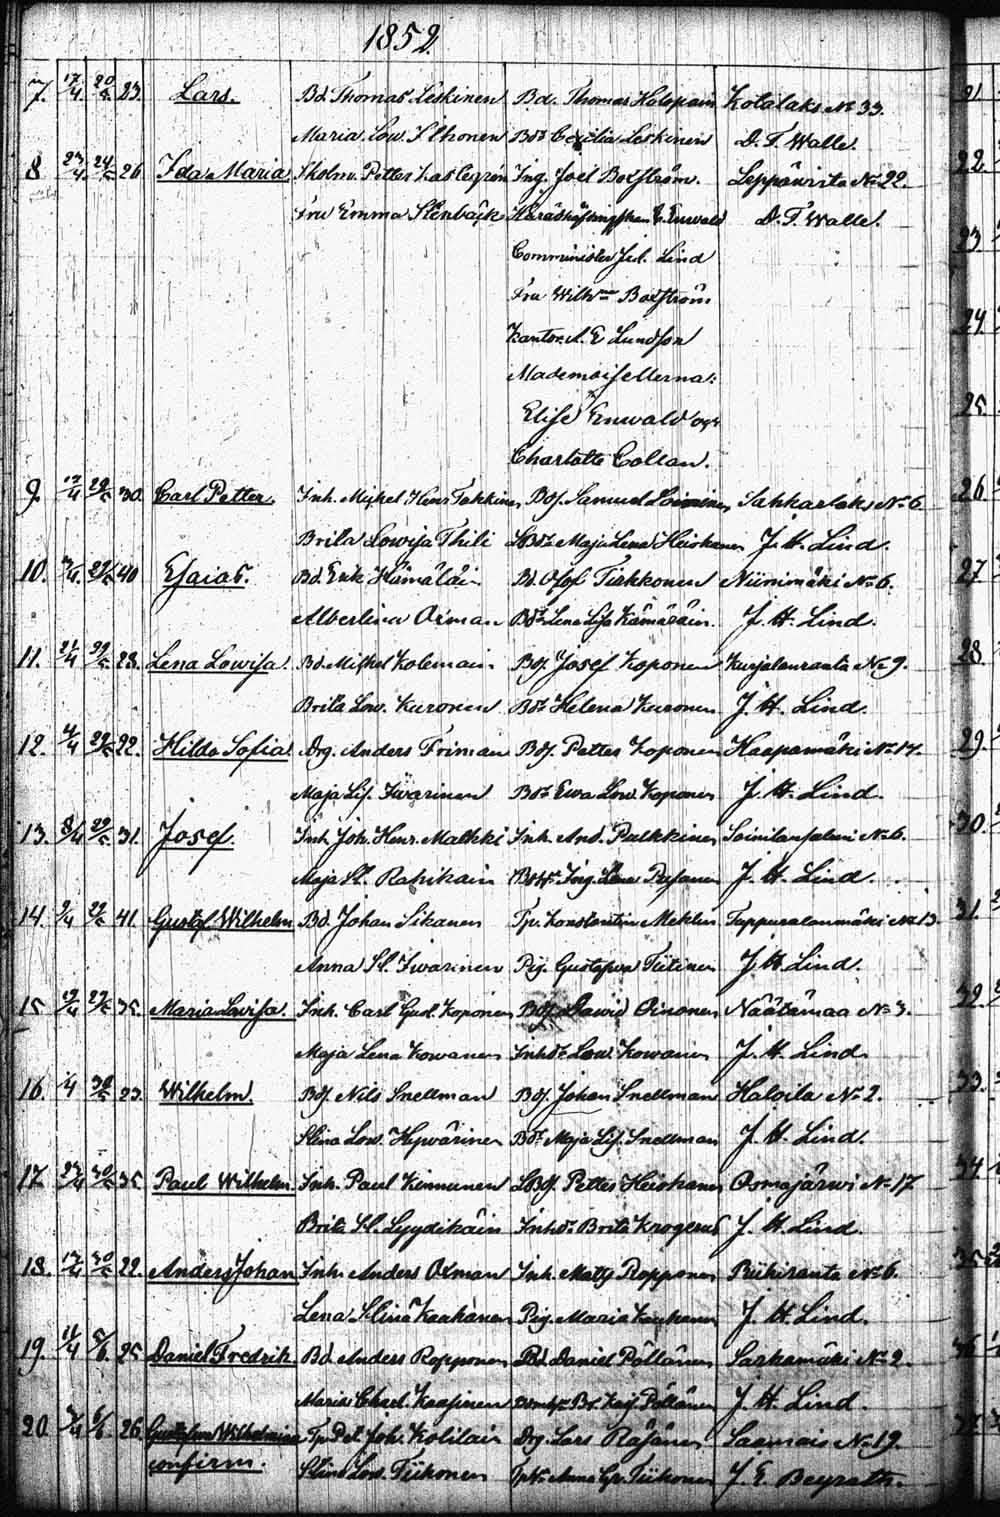 1852
7. 17/4 20/5 23. Lars. Bd. Thomas Leskinen Bd. Thomas Halopain Kotalaks No 33.
Maria Low. Ilhonen Bdr Cecilia Leskinen D. F. Walle.
8 23/4 24/5 26 Ida Maria Petter Ing. Joel Boxström. Leppäwirta No 22.
Fru Emma Stenbäck Enwald D. F. Walle.
Comminister Jul. Lind
Fru Wilhma Boxström
Kantor. A. E Lundson
Mademoisellerna:
Elise Enwald och
Charlotte Collan.
9. 17/4 29/5 30. Carl Petter. Inh. Mickel Henr Tahkinen Bds. Samuel Loininen Sahkarlaks No 6
Brita Lowisa Thili LBdr Maja Lena Heiskanen J. H. Lind.
10. 29/5 40 Esaias. Bd. Erik Hämäläin Bd. Olof Tirkkonen Niinimäki No 6.
Albertina Orman Bdr Lena Lisa Kämäräin. J. H. Lind.
11. 21/4 29/5 28. Lena Lowisa. Bd. Mickel Kolemain Bds. Josef Koponen Kurjalanranta No 9.
Brita Low. Kuronen Bdr Helena Kuronen J. H. Lind.
12. 4/4 29/5 22. Hilda Sofia. Drg. Anders Friman Bds. Petter Koponen Haapamäki No 17.
Maja Lis. Iwarinen Bdr Ewa Low. Koponen J. H. Lind.
13. 8/4 29/5 31. Josef. Inh. Joh. Henr. Malkki Inh. And. Pulkkinen Soinilansalmi No 6.
Maja St. Rahikain Ing. Lena J. H. Lind.
14. 9/4 29/5 41. Gustaf Wilhelm Bd. Johan Sikanen Tp. Konstantin Meklin Tappuralanmäki No 13.
Anna St. Iwarinen Pig. Gustafva Tiitinen J. H. Lind.
15 19/4 29/5 35. Maria Lovisa. Inh. Carl Gust. Koponen Bds. Dawid Oinonen Näätämaa No 3.
Maja Lena Kowanen Inhdr Low. Kowanen J. H. Lind
16. 1/4 30/5 23. Wilhelm. Bds. Nils Snellman Bds. Johan Snellman Haloila No 2.
Stina Low. Hywärinen Bdr Maja Lis. Snellman J. H. Lind.
17 23/4 30/5 35 Paul Wilhelm. Inh. Paul Kinnunen LBds. Petter Heiskanen Osmajärwi No 17
Brita St. Lyydikäin Inhdr Brita Krogerus J. H. Lind.
18. 13/4 30/5 22. Anders Johan Inh. Anders Oxman Inh. Matts Ropponen Riihiranta No 6.
Lena Stina Kauhanen Pig. Maria Kauhanen J. H. Lind.
19. 11/4 5/6. 25 Daniel Fredrik Bd. Anders Ropponen Bd. Daniel Pöllänen Sarkamäki No 2.
Maria Charl. Kaasinen Kaj. Pöllänen J. H. Lind.
20. 6/6. 26. Gustafwa Wilhelmina Tp. Pet. Joh. Kolilain Drg. Lars Räsänen Saamais No 19.
confirm. Stina Low. Tiihonen Anna Tiihonen J. E. Beyrath.
21
22.
23
24.
25
26.
27
28.
29.
30.
31.
32.
33.
34.
35
36